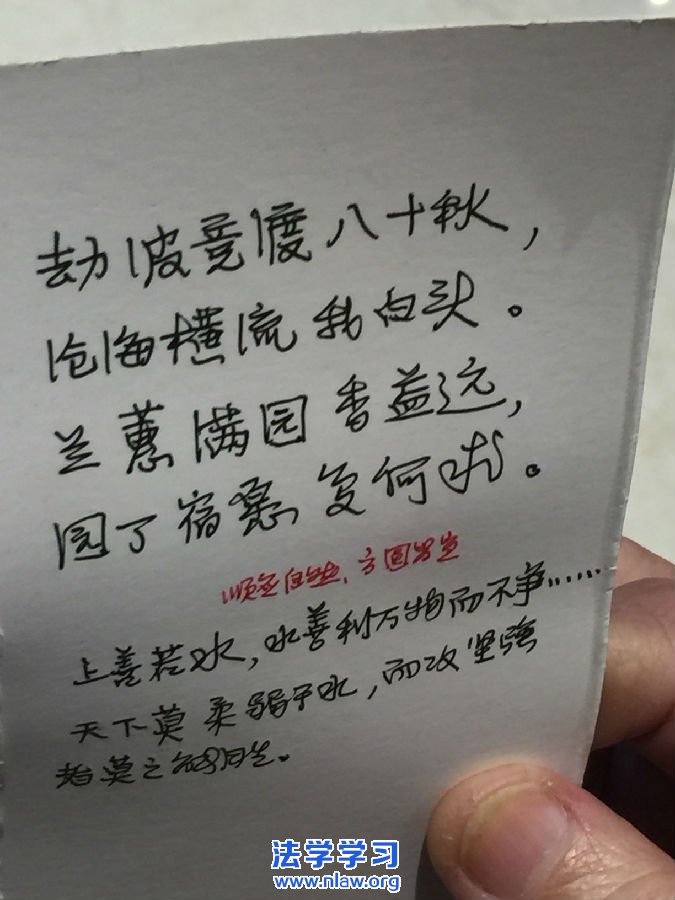 劫波竞度八十秋，
沧海横流我白头。
兰蕙满园香益远，
园丁宿愿复何求。
顺其自然，方圆
上善若水，水善利万物而不争……
天下莫柔弱于水，而攻坚强
者莫之能胜。
法学学习
www.nlaw.org